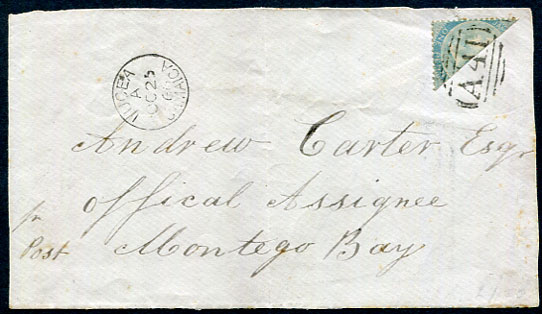 LUCEA
A
OC 25
JAMAICA
A41
Andrew Carter Esqr
Offical Assignee
pr
Post
Montego Bay